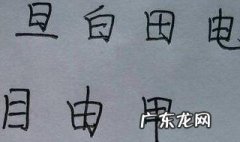 旦白田电
目由甲
广东龙网